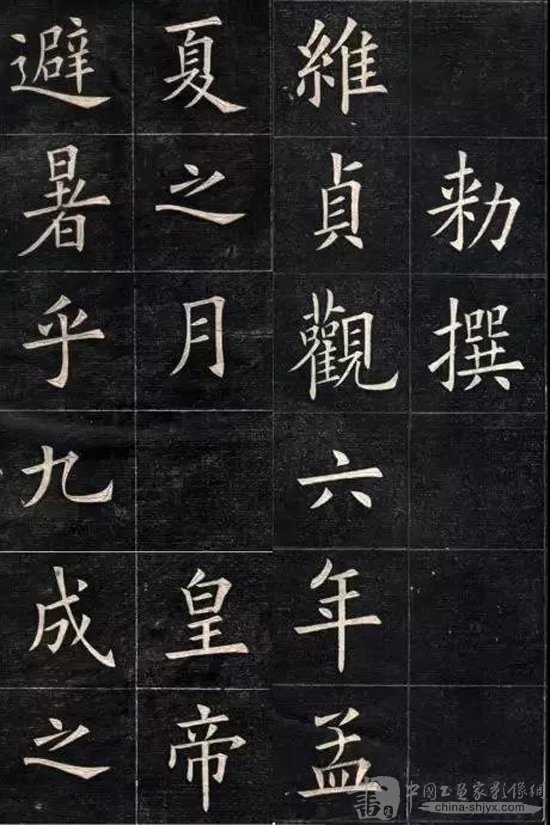 勑撰
維貞觀六年孟
夏之月皇帝
避暑乎九成之
中國書畫家影像網
china-shjyx.com